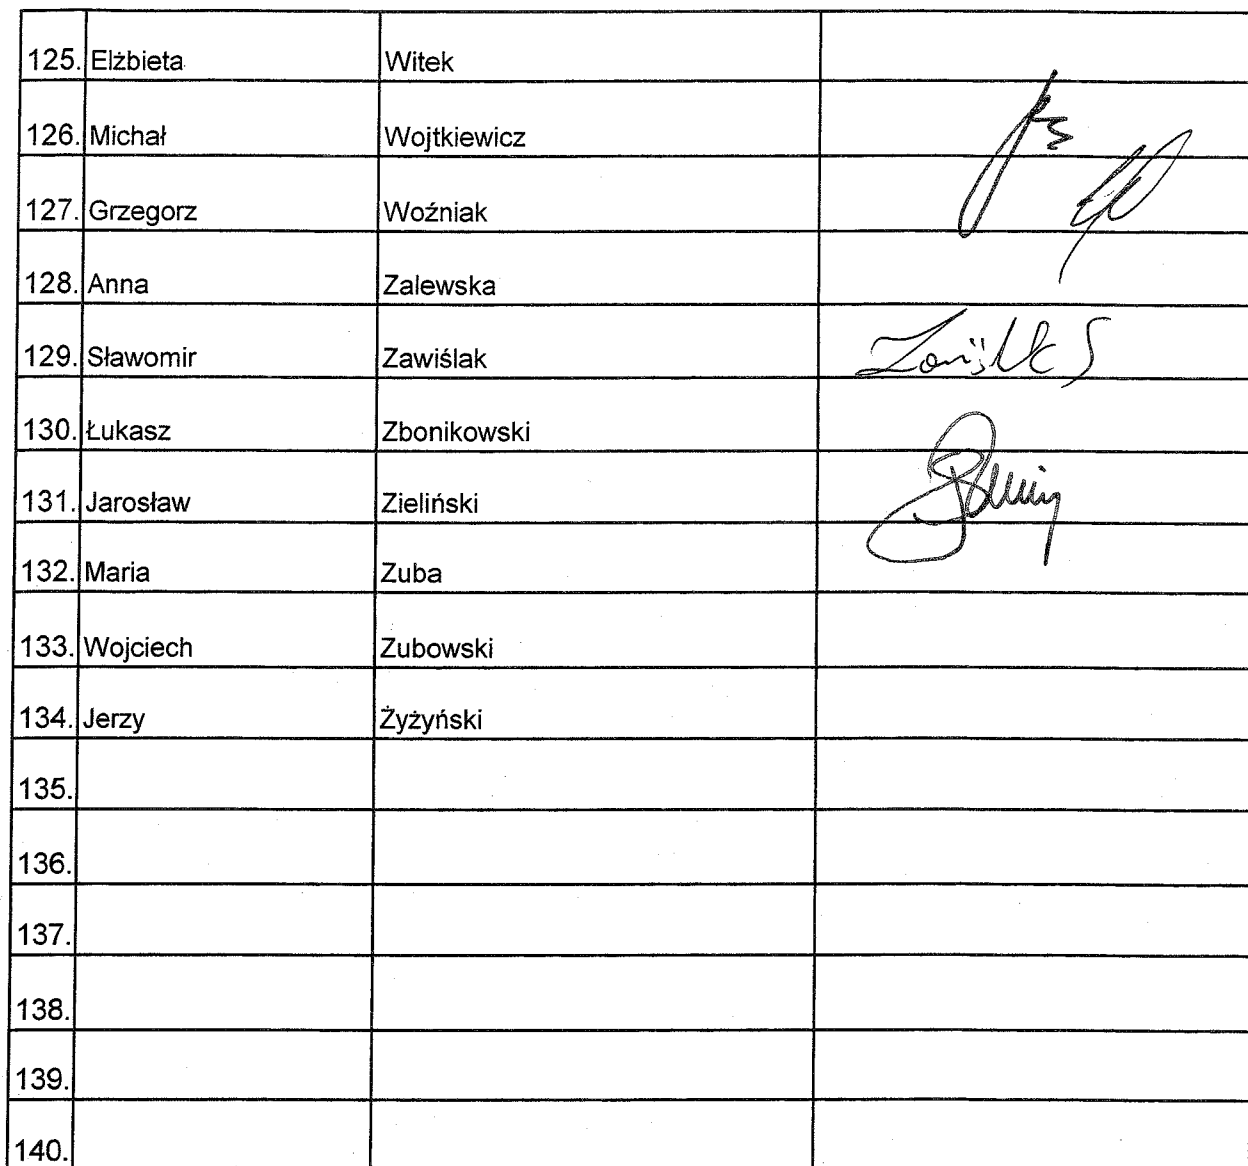 125. Elżbieta Witek
126. Michał Wojtkiewicz
127. Grzegorz Woźniak
128. Anna Zalewska
129. Sławomir Zawiślak
130. Łukasz Zbonikowski
131. Jarosław Zieliński
132. Maria Zuba
133. Wojciech Zubowski
134. Jerzy Żyżyński
135.
136.
137.
138.
139.
140.